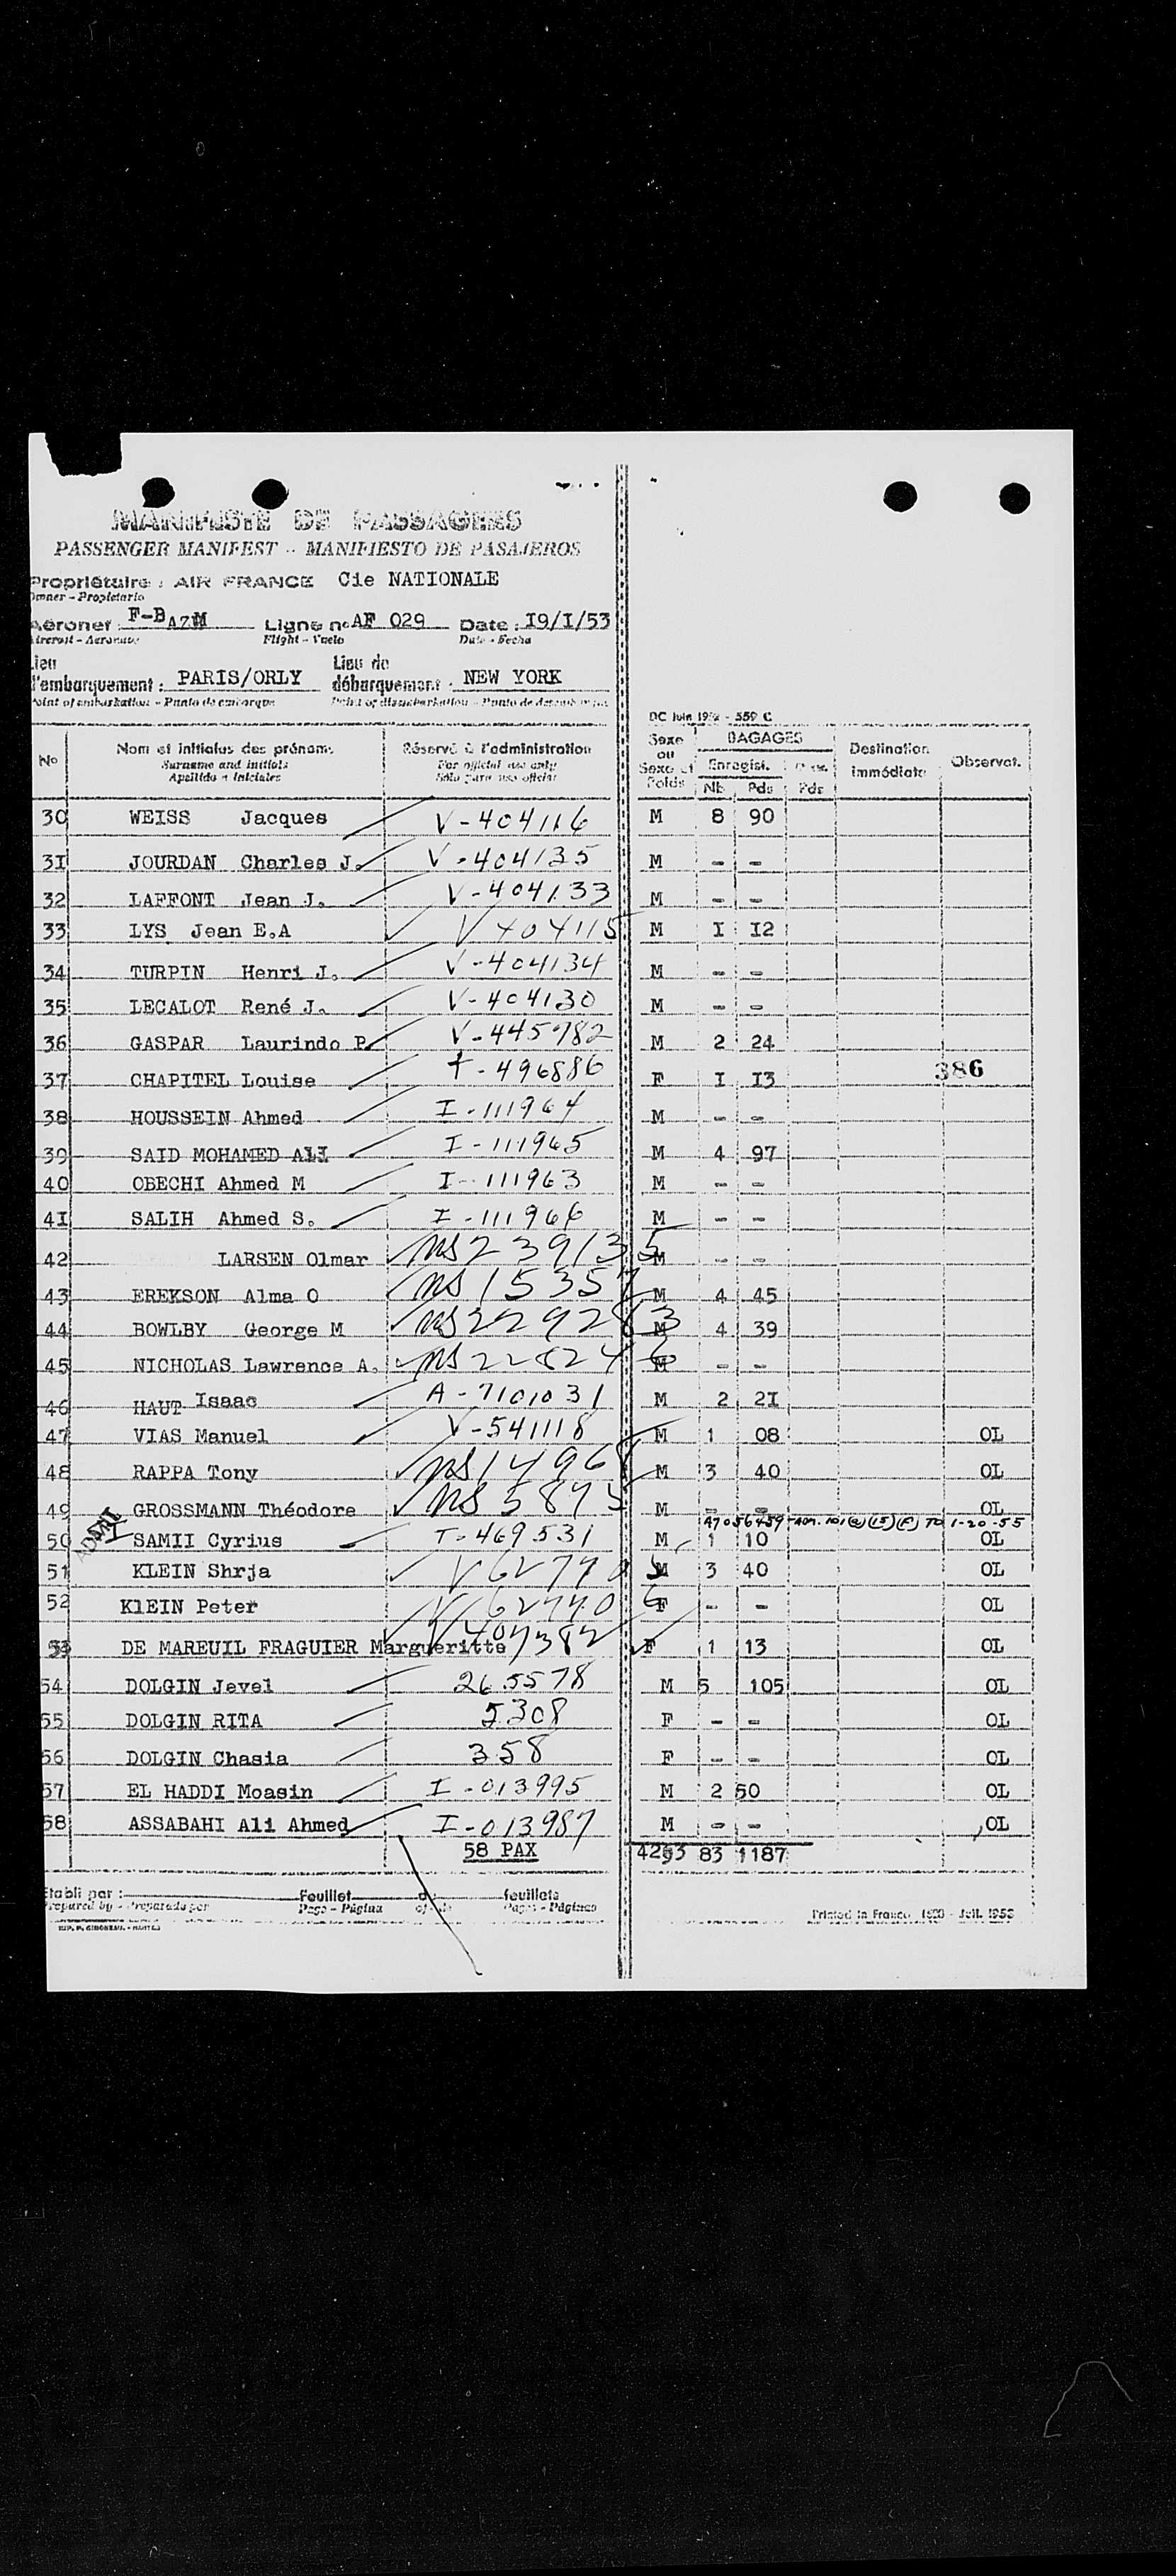 MANIFESTE DE PASSAGERS
PASSENGER MANIFEST - MANIFIESTO DE PASAJEROS
Propriétaire : AIR FRANCE Cie NATIONALE
Owner - Propietario
Aéronef : F-BAZM Ligne no AF 029 Date : I9/I/53
Aircraft - Aeronave Flight - Vuelo Date - Fecha
Lieu d'embarquement : PARIS/ORLY Lieu de débarquement : NEW YORK
Point of embarkation - Punto de embarque
DC Juin 1952 - 559 C
No Nom et initiales des prénoms Réservé à l'administration Sexe ou Sexe et Poids BAGAGES Destination immédiate Observat.
Surname and initials For official use only Enregist.
Apellido e iniciales Sólo para uso oficial Nb Pds Pds
30 WEISS Jacques V-404116 M 8 90
3I JOURDAN Charles J. V-404135 M - -
32 LAFFONT Jean J. V-404133 M - -
33 LYS Jean E.A V404115 M I I2
34 TURPIN Henri J. V-404134 M - -
35 LECALOT René J. V-404130 M - -
36 GASPAR Laurindo P. V-445982 M 2 24
37 CHAPITEL Louise T-496886 F I I3 386
38 HOUSSEIN Ahmed I-111964 M - -
39 SAID MOHAMED ALI I-111965 M 4 97
40 OBECHI Ahmed M I-111963 M - -
4I SALIH Ahmed S. I-111966 M - -
42 LARSEN Olmar M - -
43 EREKSON Alma O M 4 45
44 BOWLBY George M M 4 39
45 NICHOLAS Lawrence A. M - -
46 HAUT Isaac A-7101031 M 2 2I
47 VIAS Manuel V-541118 M 1 08 OL
48 RAPPA Tony M 3 40 OL
49 GROSSMANN Théodore M - - OL
A7056459 1-20-55
50 SAMII Cyrius T-469531 M 1 10 OL
51 KLEIN Shrja M 3 40 OL
52 KlEIN Peter F - - OL
53 DE MAREUIL FRAGUIER Margueritte F 1 13 OL
54 DOLGIN Jevel 265578 M 5 105 OL
55 DOLGIN RITA 5308 F - - OL
56 DOLGIN Chasia 358 F - - OL
57 EL HADDI Moasin I-013995 M 2 50 OL
58 ASSABAHI Ali Ahmed I-013987 M - - OL
58 PAX 83 1187
Etabli par : Feuillet de feuillets
Prepared by - Preparado por Page - Página of - de Pages - Páginas